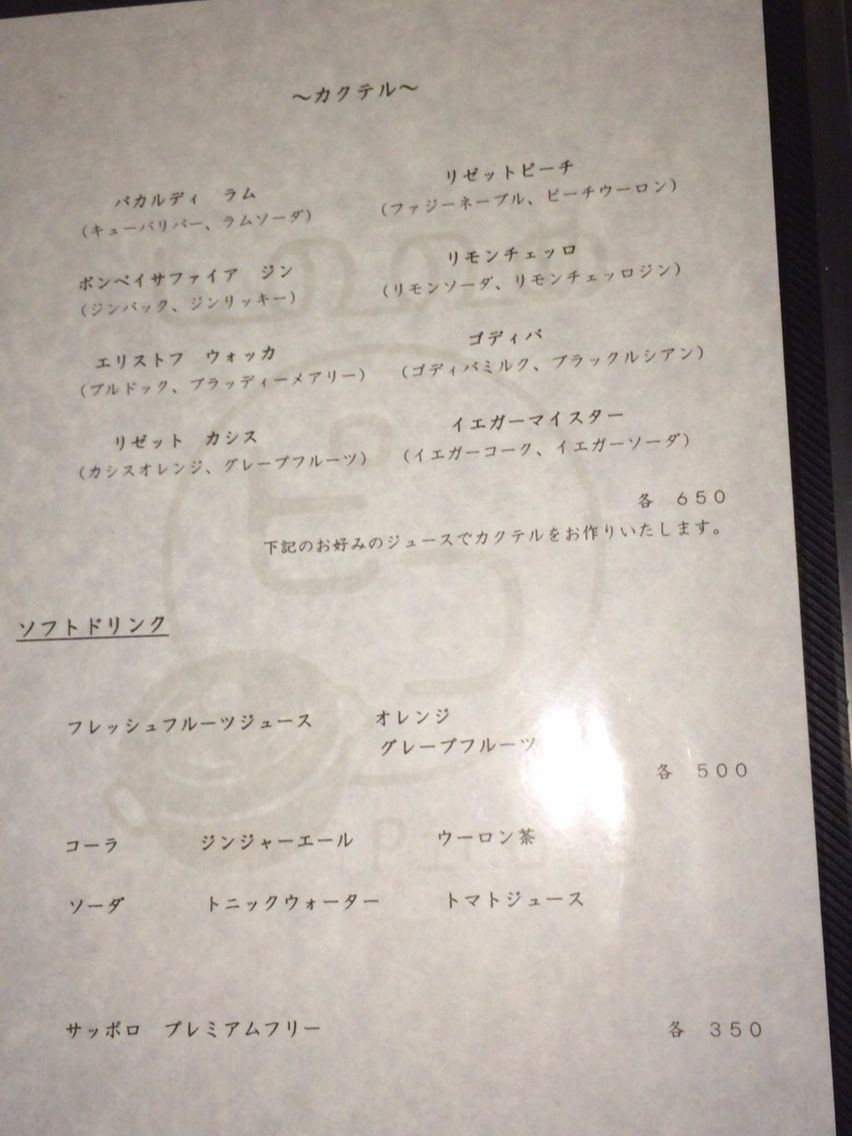 ～カクテル～
バカルディ　ラム
（キューバリバー、ラムソーダ）
リゼットピーチ
（ファジーネーブル、ピーチウーロン）
ボンベイサファイア　ジン
（ジンバック、ジンリッキー）
リモンチェッロ
（リモンソーダ、リモンチェッロジン）
エリストフ　ウォッカ
（ブルドック、ブラッディーメアリー）
ゴディバ
（ゴディバミルク、ブラックルシアン）
リゼット　カシス
（カシスオレンジ、グレープフルーツ）
イエガーマイスター
（イエガーコーク、イエガーソーダ）
各　６５０
下記のお好みのジュースでカクテルをお作りいたします。
ソフトドリンク
フレッシュフルーツジュース　　オレンジ
グレープフルーツ
各　５００
コーラ　　ジンジャーエール　　ウーロン茶
ソーダ　　トニックウォーター　　トマトジュース
サッポロ　プレミアムフリー　　各　３５０